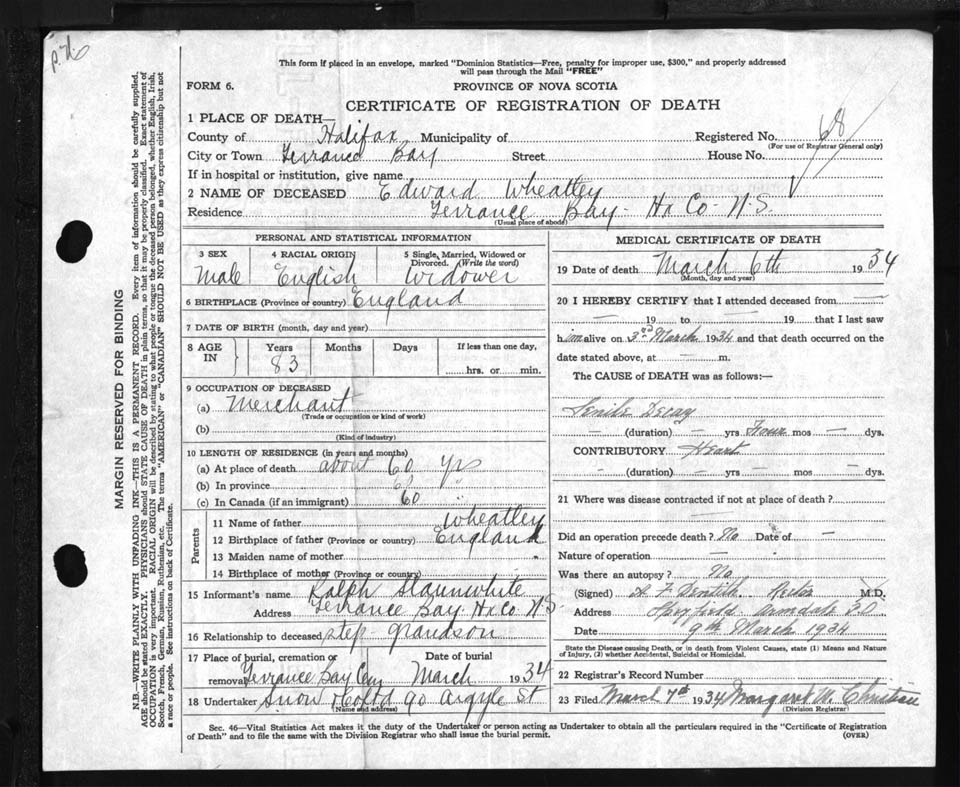 This form if placed in an envelope, marked "Dominion Statistics—Free, penalty for improper use, $300," and properly addressed
will pass through the Mail "FREE"
FORM 6.
PROVINCE OF NOVA SCOTIA
CERTIFICATE OF REGISTRATION OF DEATH
1 PLACE OF DEATH—
County of Halifax Municipality of
Registered No. 68
(For use of Registrar General only)
City or Town Terrance Bay Street House No.
If in hospital or institution, give name
2 NAME OF DECEASED Edward Wheatley
Residence Terrance Bay - Hx Co - N.S.
(Usual place of abode)
PERSONAL AND STATISTICAL INFORMATION
3 SEX 4 RACIAL ORIGIN 5 Single, Married, Widowed or Divorced. (Write the word)
Male English Widower
6 BIRTHPLACE (Province or country) England
7 DATE OF BIRTH (month, day and year)
8 AGE IN Years Months Days If less than one day,
83 hrs. or min.
9 OCCUPATION OF DECEASED
(a) Merchant
(Trade or occupation or kind of work)
(b)
(Kind of industry)
10 LENGTH OF RESIDENCE (in years and months)
(a) At place of death about 60 yrs
(b) In province
(c) In Canada (if an immigrant) 60 "
Parents
11 Name of father Wheatley
12 Birthplace of father (Province or country) England
13 Maiden name of mother
14 Birthplace of mother (Province or country)
15 Informant's name Ralph Slaunwhite
Address Terrance Bay Hx Co N S
16 Relationship to deceased step-grandson
17 Place of burial, cremation or removal Date of burial
Terrance Bay Cem March 1934
18 Undertaker Snow & Co Ltd 90 Argyle St
(Name and address)
MEDICAL CERTIFICATE OF DEATH
19 Date of death March 6th 1934
(Month, day and year)
20 I HEREBY CERTIFY that I attended deceased from —
— 19 to — 19 that I last saw
him alive on 3rd March 1934 and that death occurred on the
date stated above, at — m.
The CAUSE of DEATH was as follows:—
Senile Decay
— (duration) — yrs Four mos — dys.
CONTRIBUTORY Heart
— (duration) — yrs — mos — dys.
21 Where was disease contracted if not at place of death?
Did an operation precede death? No Date of —
Nature of operation —
Was there an autopsy? No
(Signed) Rector M.D.
Address Armdale P.O
Date 9th March 1934
State the Disease causing Death, or in death from Violent Causes, state (1) Means and Nature
of Injury, (2) whether Accidental, Suicidal or Homicidal.
22 Registrar's Record Number
23 Filed March 7th 1934 Margaret M. Christian
(Division Registrar)
Sec. 46—Vital Statistics Act makes it the duty of the Undertaker or person acting as Undertaker to obtain all the particulars required in the "Certificate of Registration
of Death" and to file the same with the Division Registrar who shall issue the burial permit. (OVER)
MARGIN RESERVED FOR BINDING
N.B.—WRITE PLAINLY WITH UNFADING INK—THIS IS A PERMANENT RECORD. Every item of information should be carefully supplied.
AGE should be stated EXACTLY. PHYSICIANS should STATE CAUSE OF DEATH in plain terms, so that it may be properly classified. Exact statement of
OCCUPATION is very important. RACIAL ORIGIN will be described by stating to what people or tongue the deceased person belonged, whether English, Irish,
Scotch, French, German, Russian, Ruthenian, etc. The terms "AMERICAN" or "CANADIAN" SHOULD NOT BE USED as they express citizenship but not
a race or people. See instructions on back of Certificate.